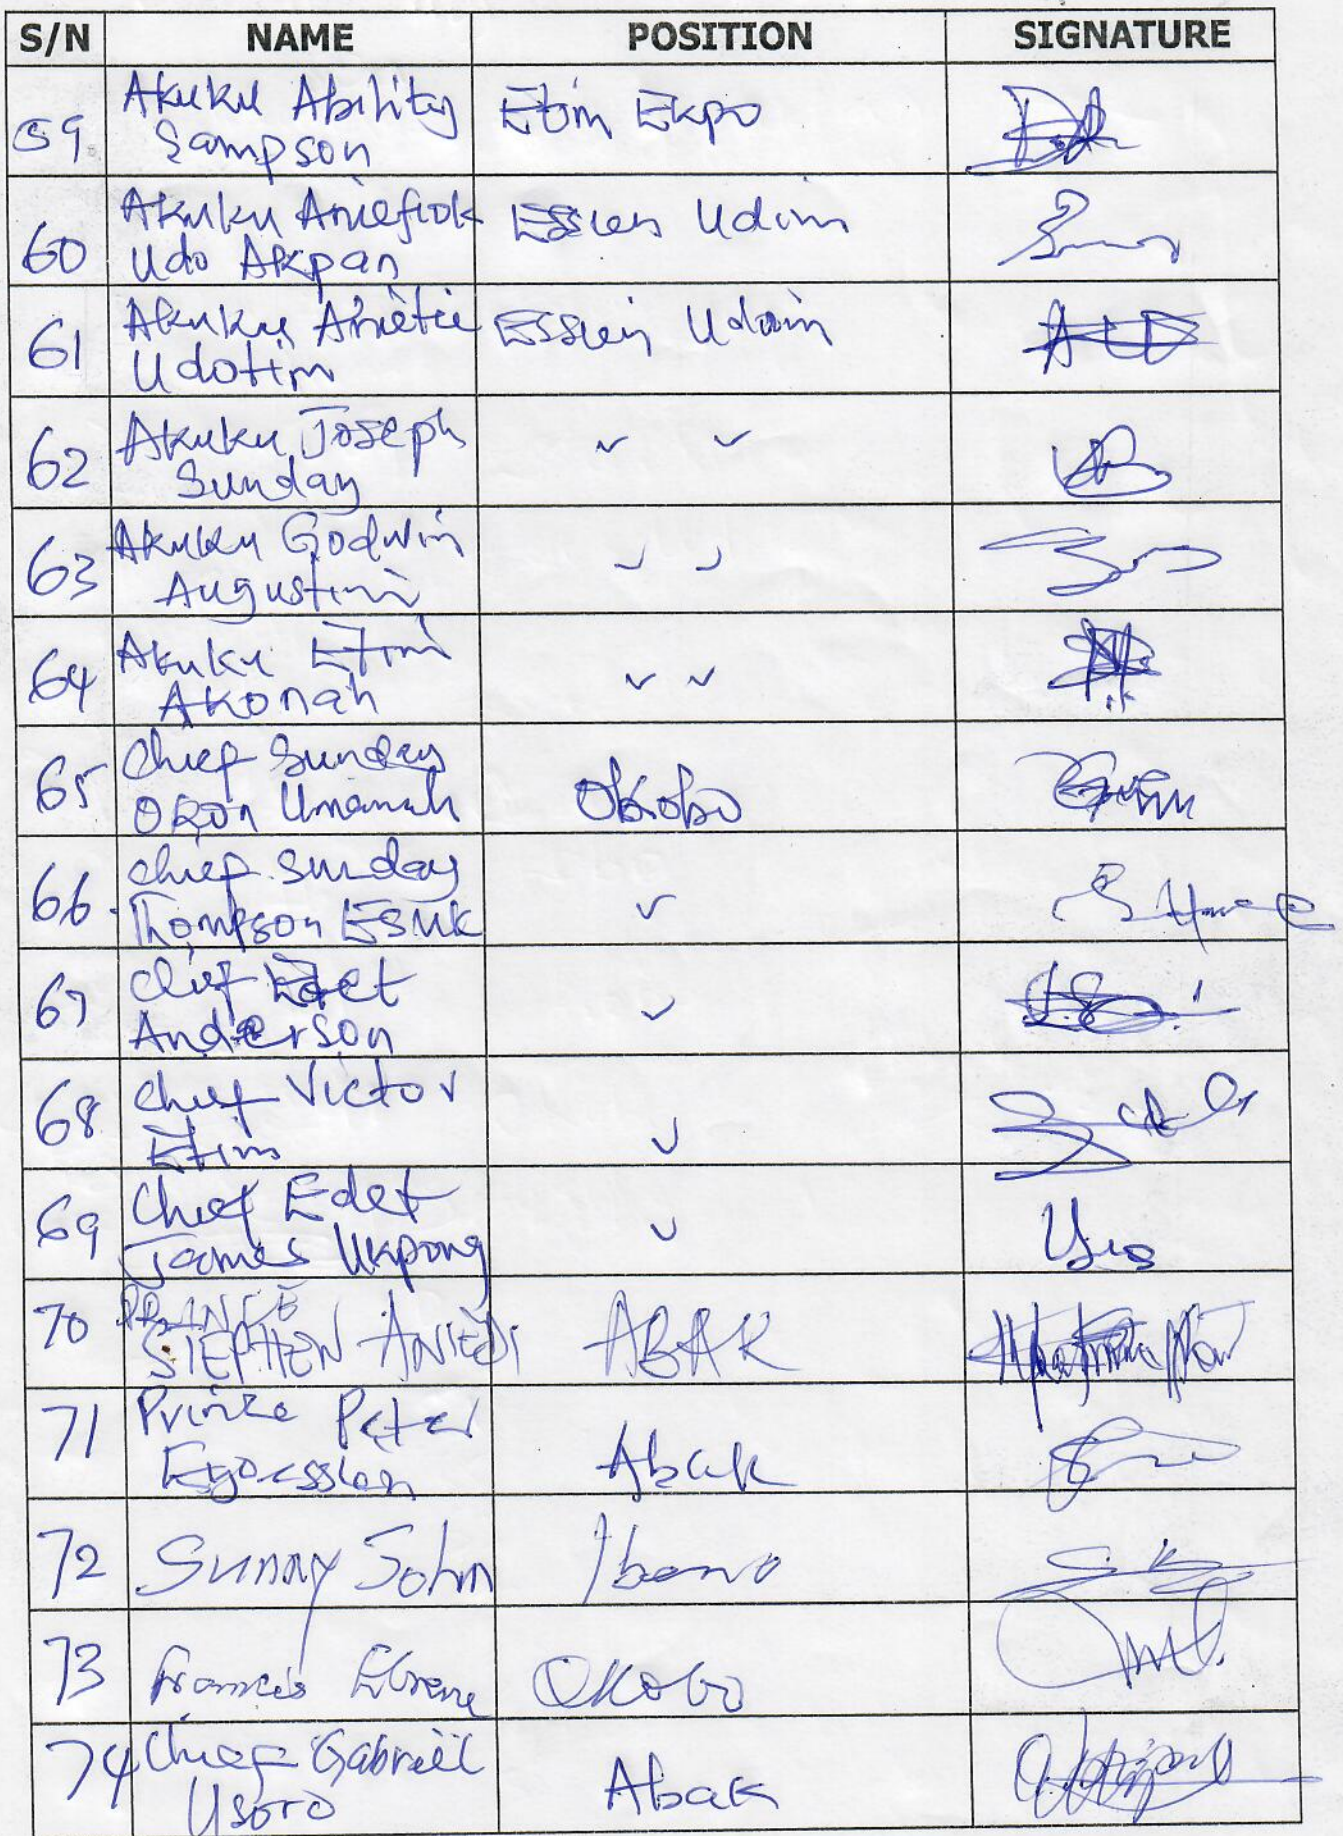 S/N NAME POSITION SIGNATURE
59. Akuku Ability Etim Ekpo
Sampson
60 Akuku Aniefiok Essien Udim
Udo Akpan
61 Akuku Anietie Essien Udim
Udotim
62 Akuku Joseph ✓ ✓
Sunday
63 Akuku Godwin ✓ ✓
Augustine
64 Akuku Etim ✓ ✓
Akonah
65 Chief Sunday
Okon Umanah Okobo
66. Chief Sunday ✓
Thompson Esuk
67 Chief Edet ✓
Anderson
68 Chief Victor ✓
Etim
69 Chief Edet ✓
James Ukpong
70 PRINCE
STEPHEN ANIEDI ABAK
71 Prince Peter
Eyoessien Abak
72 Sunny John Ibeno
73 Francis Okobo
74 Chief Gabriel
Usoro Abak